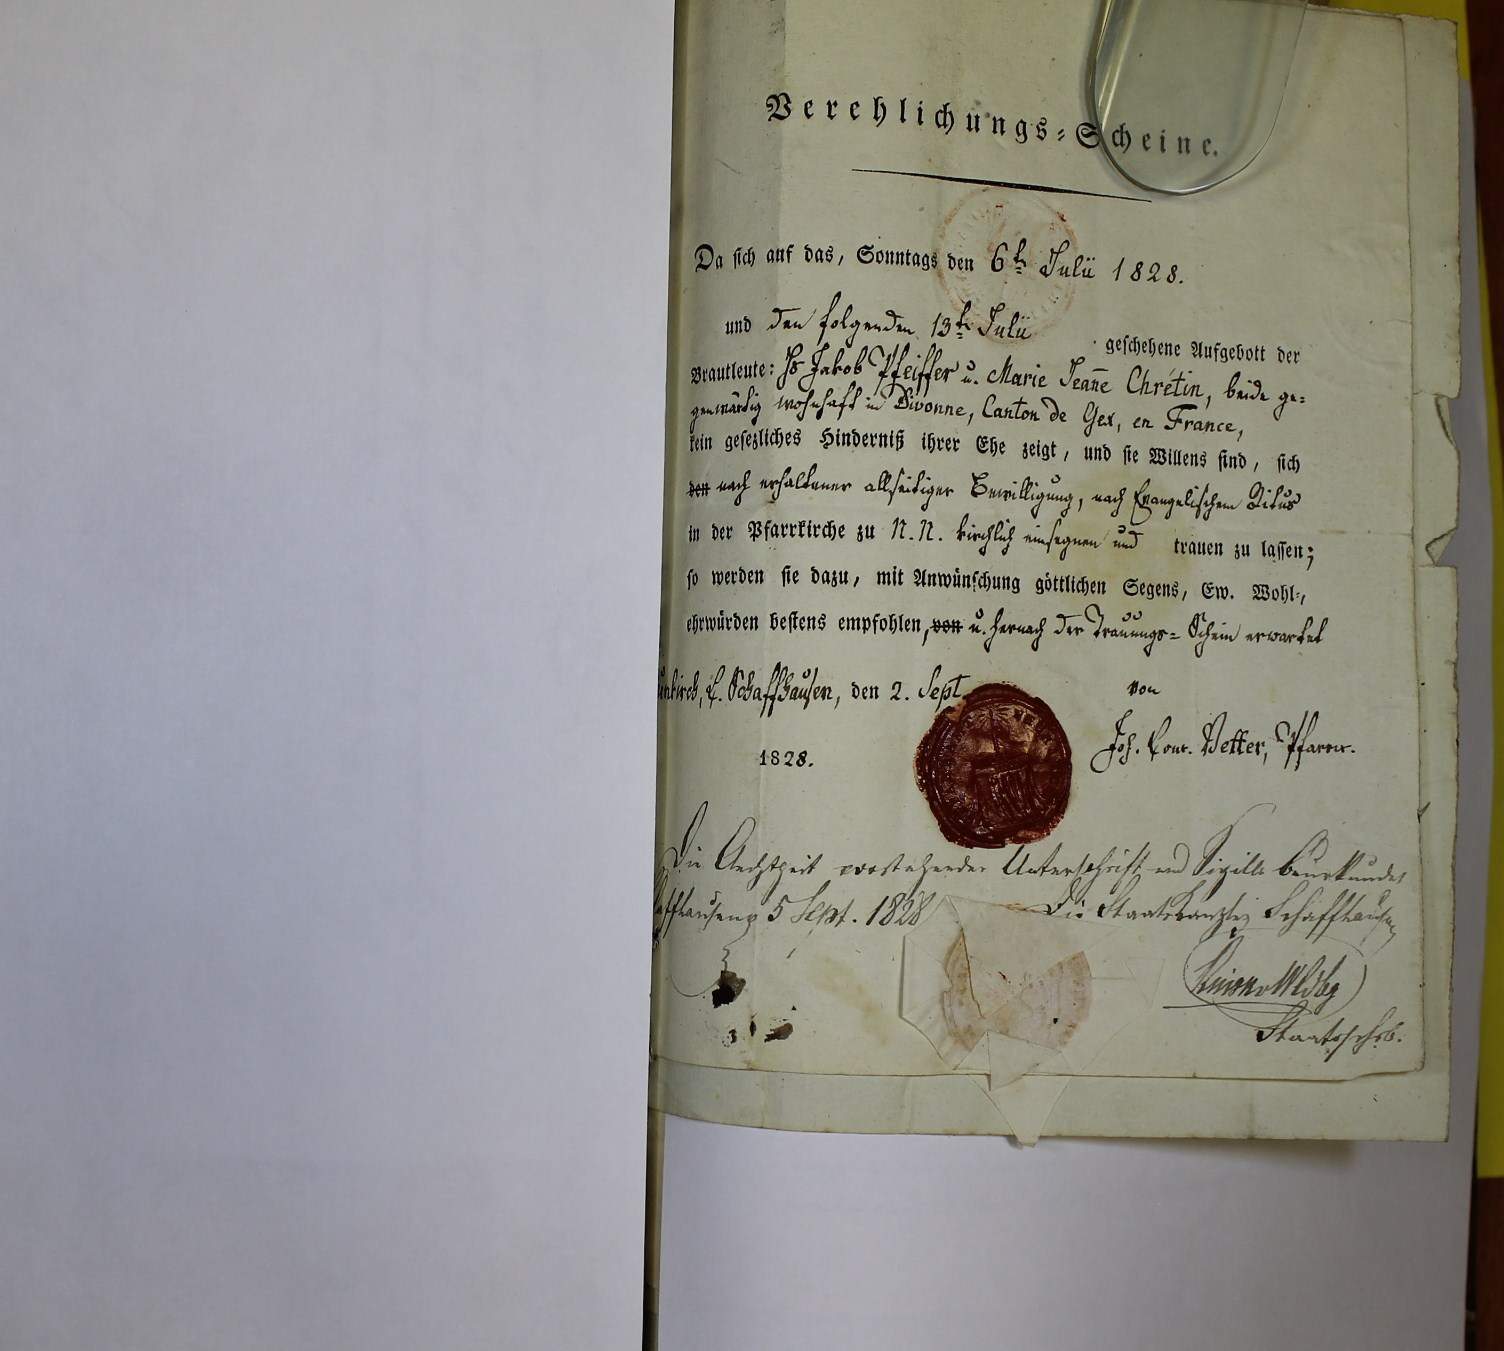 Verehlichungs-Scheine.
Da sich auf das, Sonntags den 6t. Julü 1828.
und den folgenden 13t. Julü geschehene Aufgebott der
Brautleute: Hs Jakob Pfeiffer u. Marie Jeañe Chrétin, beide ge=
genwärtig wohnhaft in Divonne, Canton de Gex, en France,
kein gesezliches Hinderniß ihrer Ehe zeigt, und sie Willens sind, sich
von nach erhaltener allseitiger Bewilligung, nach Evangelischem Ritus
in der Pfarrkirche zu N. N. kirchlich einsegnen und trauen zu lassen;
so werden sie dazu, mit Anwünschung göttlichen Segens, Ew. Wohl-,
ehrwürden bestens empfohlen, von u. hernach der Trauungs= Schein erwartet
C. Schaffhausen, den 2. Sept. von
1828. Joh. Conr. Vetter, Pfarrer.
Die Aechtheit vorstehender Unterschrift und Sigills beurkundet
5 Sept. 1828 Die Staatskanzley Schaffhausen
Staatsschrb.